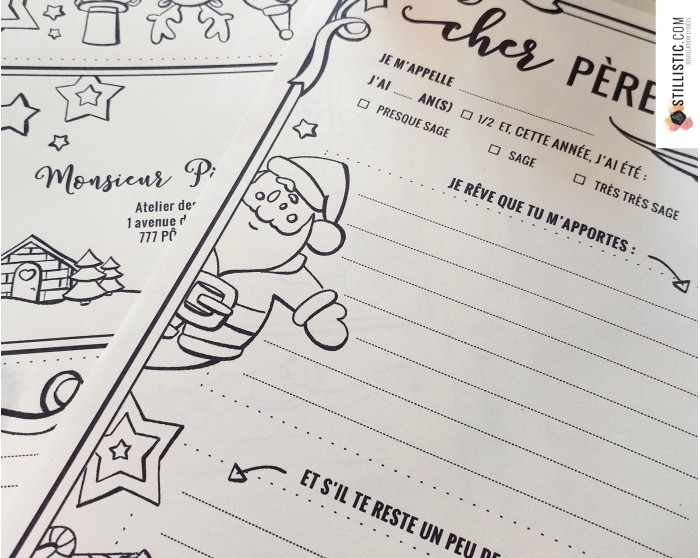 cher PÈRE
JE M'APPELLE
J'AI AN(S) 1/2 ET, CETTE ANNÉE, J'AI ÉTÉ :
PRESQUE SAGE SAGE TRÈS TRÈS SAGE
JE RÊVE QUE TU M'APPORTES :
ET S'IL TE RESTE UN PEU DE
Monsieur
Atelier des
1 avenue
777
STILLISTIC.COM